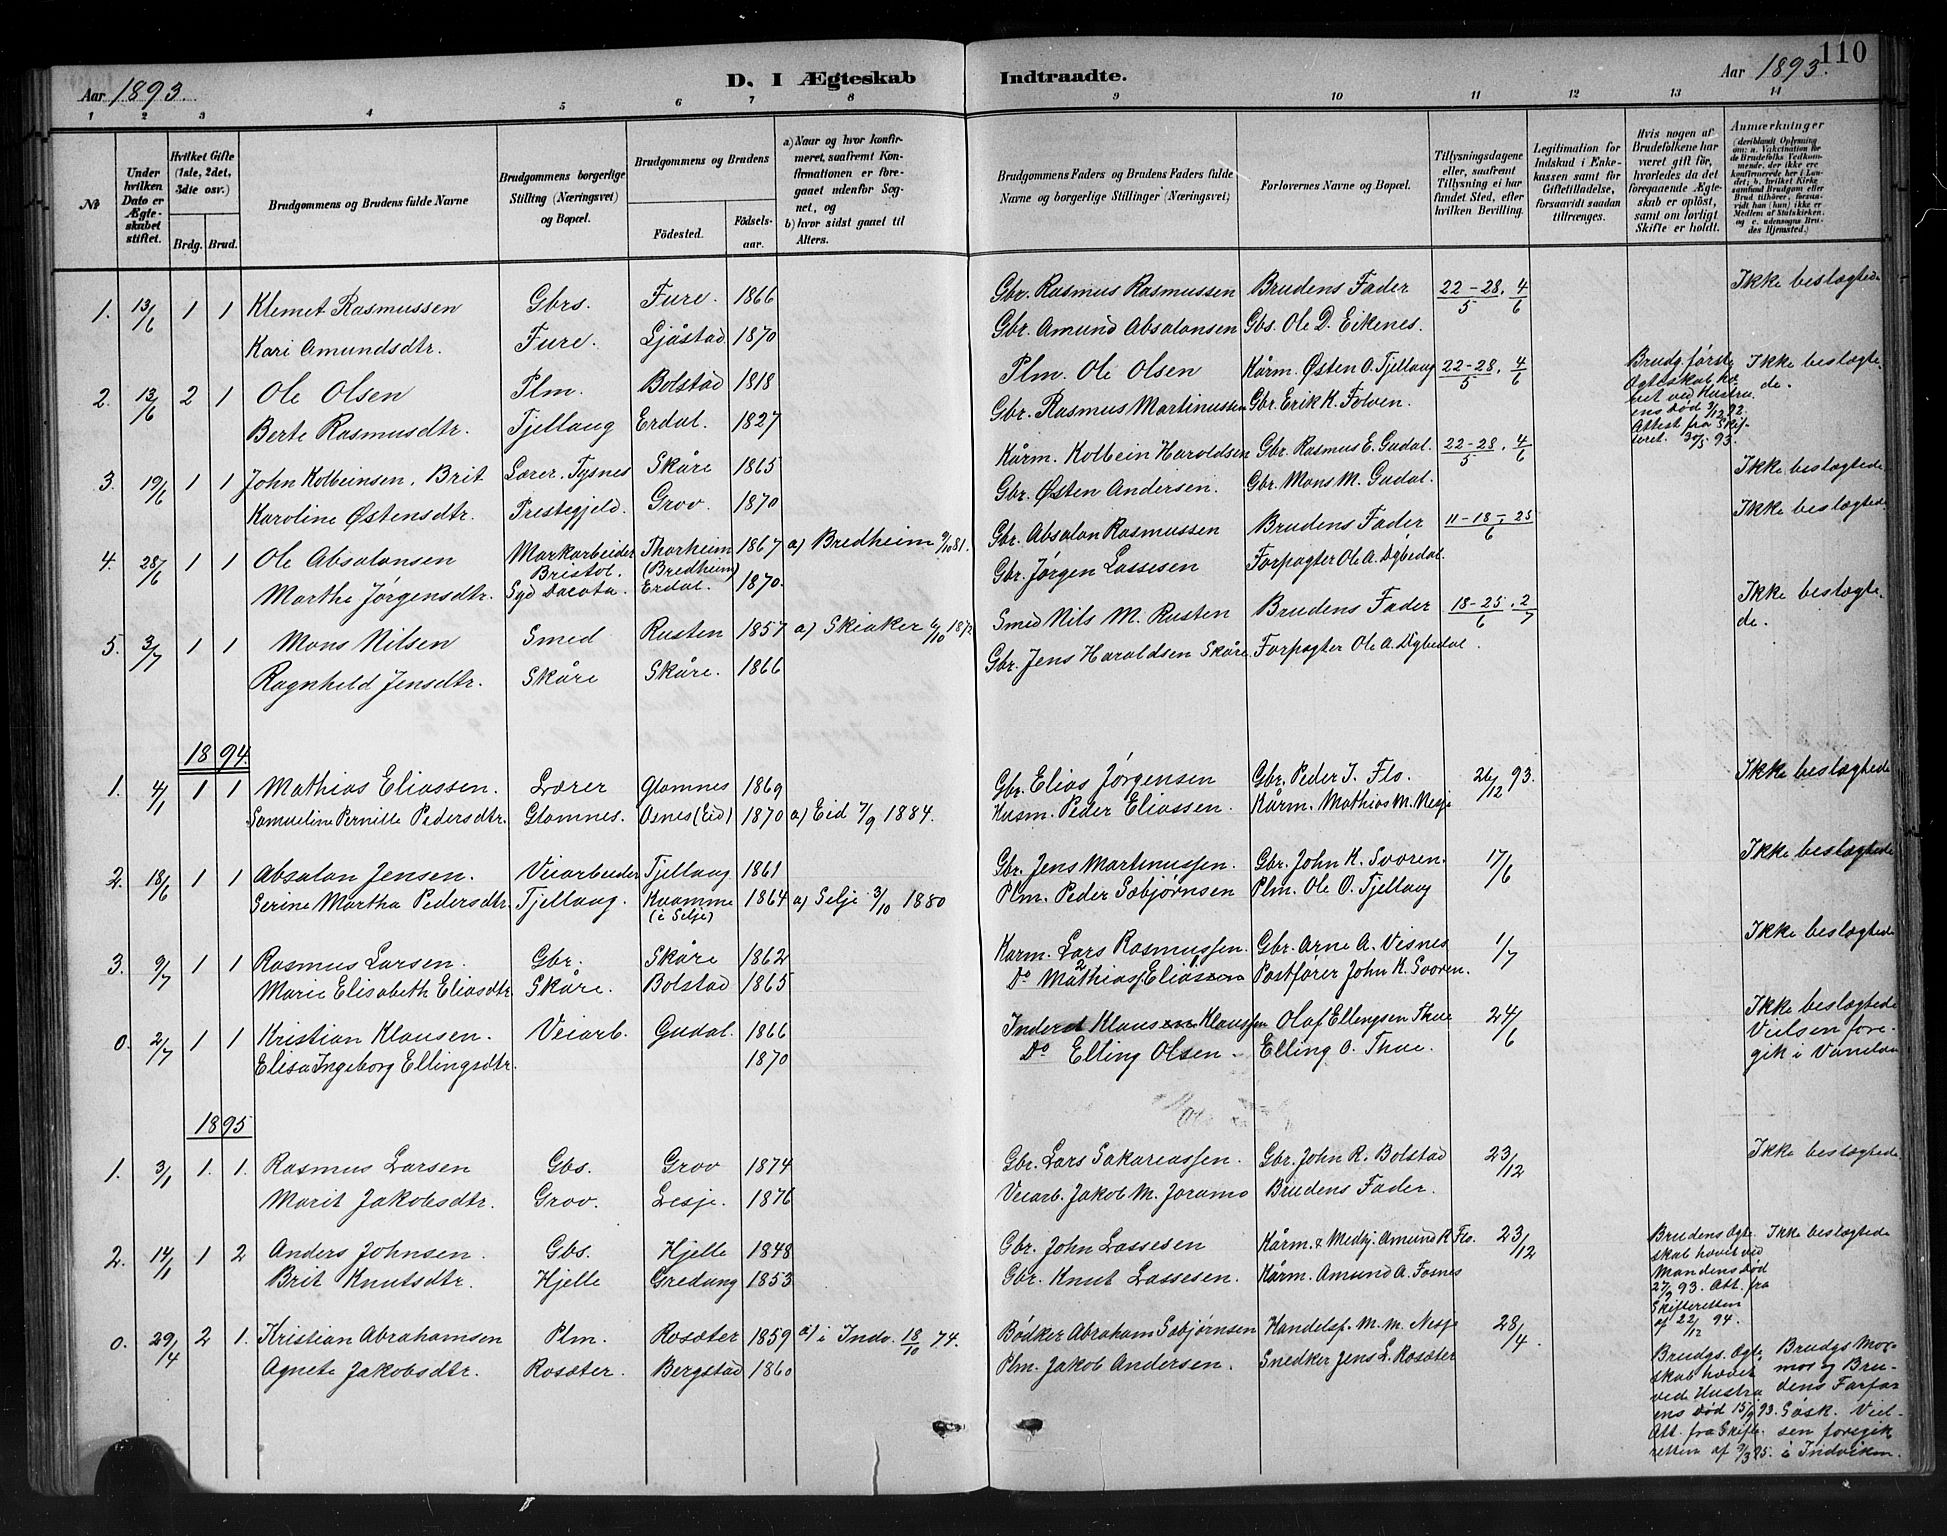 110
Aar 1893.
D. I Ægteskab
Indtraadte.
Aar 1893.
1 2 3 4 5 6 7 8 9 10 11 12 13 14
№
Under hvilken Dato er Ægteskabet stiftet.
Hvilket Gifte (1ste, 2det, 3die osv.)
Brdg. Brud.
Brudgommens og Brudens fulde Navne
Brudgommens borgerlige Stilling (Næringsvei) og Bopæl.
Brudgommens og Brudens
Fødested.
Fødselsaar.
a) Naar og hvor konfirmeret, saafremt Konfirmationen er foregaaet udenfor Sognet, og
b) hvor sidst gaaet til Alters.
Brudgommens Faders og Brudens Faders fulde Navne og borgerlige Stillinger (Næringsvei)
Forlovernes Navne og Bopæl.
Tillysningsdagene eller, saafremt Tillysning ei har fundet Sted, efter hvilken Bevilling.
Legitimation for Indskud i Enkekassen samt for Giftetilladelse, forsaavidt saadan tiltrænges.
Hvis nogen af Brudefolkene har været gift før, hvorledes da det foregaaende Ægteskab er opløst, samt om lovligt Skifte er holdt.
Anmærkninger
(deriblandt Oplysning om: a. Vakcination for de Brudefolks Vedkommende, der ikke ere konfirmerede her i Landet; b. hvilket Kirkesamfund Brudgom eller Brud tilhører, forsaavidt han (hun) ikke er Medlem af Statskirken, og c. udensogns Brudes Hjemsted.)
1. 13/6 1 1 Klemet Rasmussen Gbrs. Fure. 1866 Gbr. Rasmus Rasmussen Brudens Fader 22-28/5. 4/6 Ikke beslægtede
Kari Amundsdtr. Fure. Ljåstad 1870 Gbr. Amund Absalonsen Gbs. Ole D. Eikenes.
2. 13/6 2 1 Ole Olsen Plm. Bolstad 1818 Plm. Ole Olsen Kårm. Østen O. Tjellaug 22-28/5. 4/6 Brudg. første Ægteskab hævet ved Hustruens død 3/12 92. Attest fra Skifteret. 30/5 93. Ikke beslægtede.
Berte Rasmusdtr. Tjellaug Erdal. 1827 Gbr. Rasmus Martinussen Gbr. Erik K. Folven.
3. 19/6 1 1 John Kolbeinsen. Brit Lærer. Tysnes Skåre 1865 Kårm. Kolbein Haroldsen Gbr. Rasmus E. Gudal. 22-28/5. 4/6 Ikke beslægtede
Karoline Østensdtr. Prestegjeld. Grov. 1870 Gbr. Østen Andersen. Gbr. Mons M. Gudal.
4. 28/6 1 1 Ole Absalonsen Markarbeider Bristol. Thorheim (Bredheim) 1867 a) Bredheim 9/10 81. Gbr. Absalon Rasmussen Brudens Fader 11-18-25/6 Ikke beslægtede
Marthe Jørgensdtr. Syd Dacota. Erdal. 1870. Gbr. Jørgen Lassesen Forpagter Ole A. Dybedal.
5. 3/7 1 1 Mons Nilsen Smed Rusten 1857 a) Skiaker 6/10 1872 Smed Nils M. Rusten Brudens Fader 18-25/6. 2/7 Ikke beslægtede.
Ragnhild Jensdtr. Skåre Skåre. 1866 Gbr. Jens Haroldsen Skåre. Forpagter Ole A. Dybedal.
1894.
1. 4/1 1 1 Mathias Eliassen. Lærer Glomnes 1869 Gbr. Elias Jørgensen Gbr. Peder J. Flo. 26/12 93. Ikke beslægtede
Samueline Pernille Pedersdtr. Glomnes. Osnes (Eid) 1870 a) Eid 7/9 1884. Husm. Peder Eliassen. Kårm. Mathias M. Nesje
2. 18/6 1 1 Absalon Jensen. Veiarbeider Tjellaug 1861 Gbr. Jens Martinussen. Gbr. John K. Svoren. 17/6 Ikke beslægtede
Serine Martha Pedersdtr. Tjellaug. Kvamme (i Selje) 1864 a) Selje 3/10 1880 Plm. Peder Sæbjørnsen Plm. Ole O. Tjellaug
3. 9/7 1 1 Rasmus Larsen. Gbr. Skåre 1862 Karm. Lars Rasmussen. Gbr. Arne A. Visnes 1/7 Ikke beslægtede
Marie Elisabeth Eliasdtr. Skåre. Bolstad 1865 Do Mathias Eliassen Postfører John K. Svoren.
0. 2/7 1 1 Kristian Klausen. Veiarb. Gudal. 1866 Inderst Klaus Klaussen Olaf Ellingsen Thue 24/6 Ikke beslægtede Vielsen foregik i Vanelven
Elisa Ingeborg Ellingsdtr. 1870 Do Elling Olsen. Elling O. Thue.
1895
1. 3/1 1. 1. Rasmus Larsen Gbs. Grov 1874 Gbr. Lars Sakariassen. Gbr. John R. Bolstad 23/12 Ikke beslægtede
Marit Jakobsdtr. Grov. Lesje. 1876 Veiarb. Jakob M. Joramo Brudens Fader.
2. 14/1 1 2 Anders Johnsen. Gbs. Hjelle 1848 Gbr. John Lassesen Kårm. & Medhj. Amund R. Flo. 23/12 Brudens Ægteskab hævet ved Mandens død 27/9 93. Att. fra Skifteretten af 22/12 94. Ikke beslægtede
Brit Knutsdtr. Hjelle Gredung 1853 Gbr. Knut Lassesen. Kårm. Amund A. Fosnes
0. 29/4 2 1. Kristian Abrahamsen Plm. Rosæter 1859 a) i Indv. 18/10 74. Bødker Abraham Sæbjørnsen Handelsf. M. M. Nesje 28/4. Brudgs. Ægteskab hævet ved Hustruens død 15/9 93. Att. fra Skifteretten af 9/3 95. Brudgs Mormor og Brudens Farfar Søsk. Vielsen foregik i Indviken.
Agnete Jakobsdtr. Rosæter. Bergstad 1860 Plm. Jakob Andersen. Snedker Jens L. Rosæter